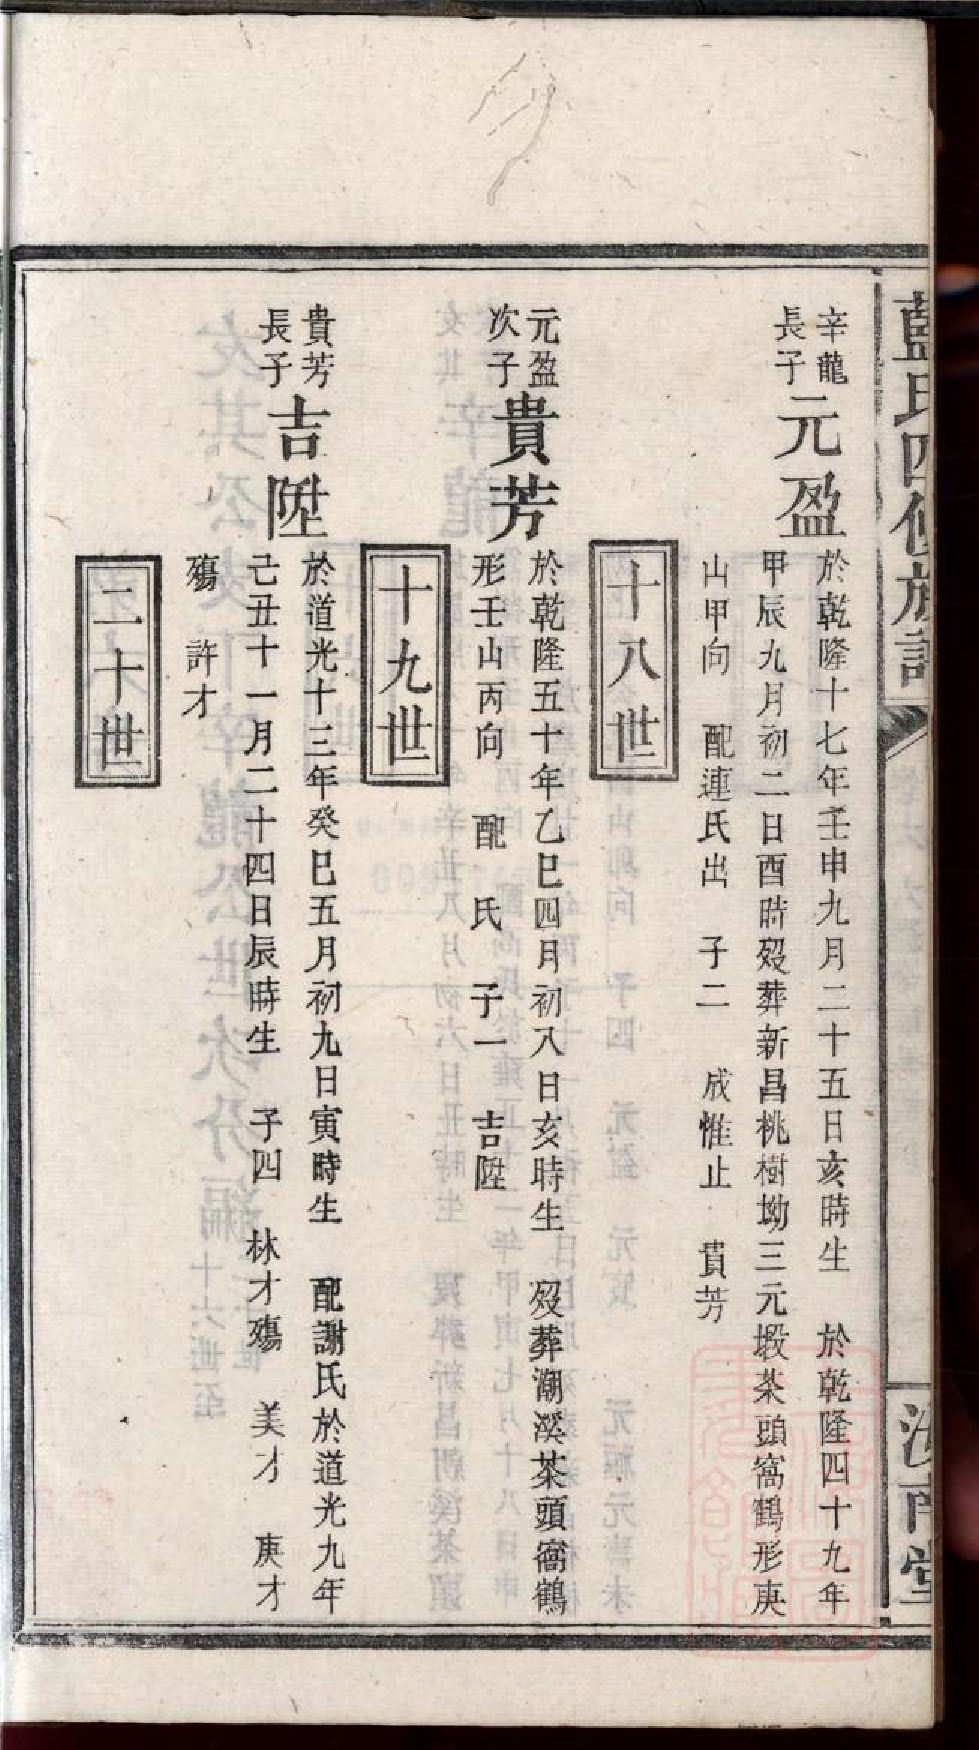 藍氏四修族譜
汝南堂
辛龍
長子
元盈
於乾隆十七年壬申九月二十五日亥時生 於乾隆四十九年
甲辰九月初二日酉時歿葬新昌桃樹坳三元塅茶頭窩鶴形庚
山甲向 配連氏出 子二 成惟止 貴芳
十八世
元盈
次子
貴芳
於乾隆五十年乙巳四月初八日亥時生 歿葬潮溪茶頭窩鶴
形壬山丙向 配 氏 子一 吉陞
十九世
貴芳
長子
吉陞
於道光十三年癸巳五月初九日寅時生 配謝氏於道光九年
己丑十一月二十四日辰時生 子四 林才殤 美才 庚才
殤 許才
二十世